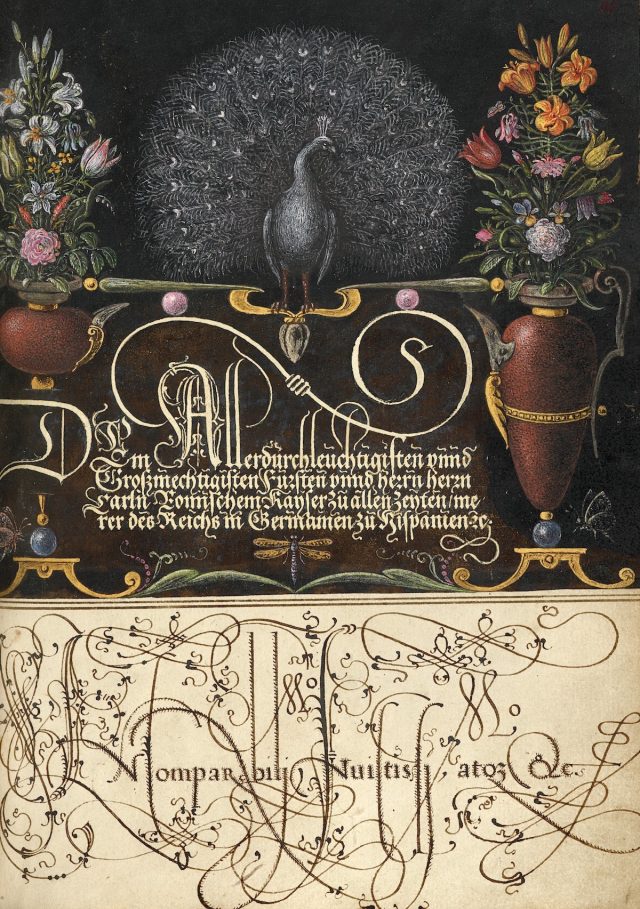 Dem Allerdürchleüchtigisten vnnd
Großmechtigisten Fürsten vnnd herrn herrn
Carln Römischem Kayser zu allen Zeyten/ me
rer des Reichs in Germanien zu Hispanien ꝛc.
mo mo
omparabili, &c.